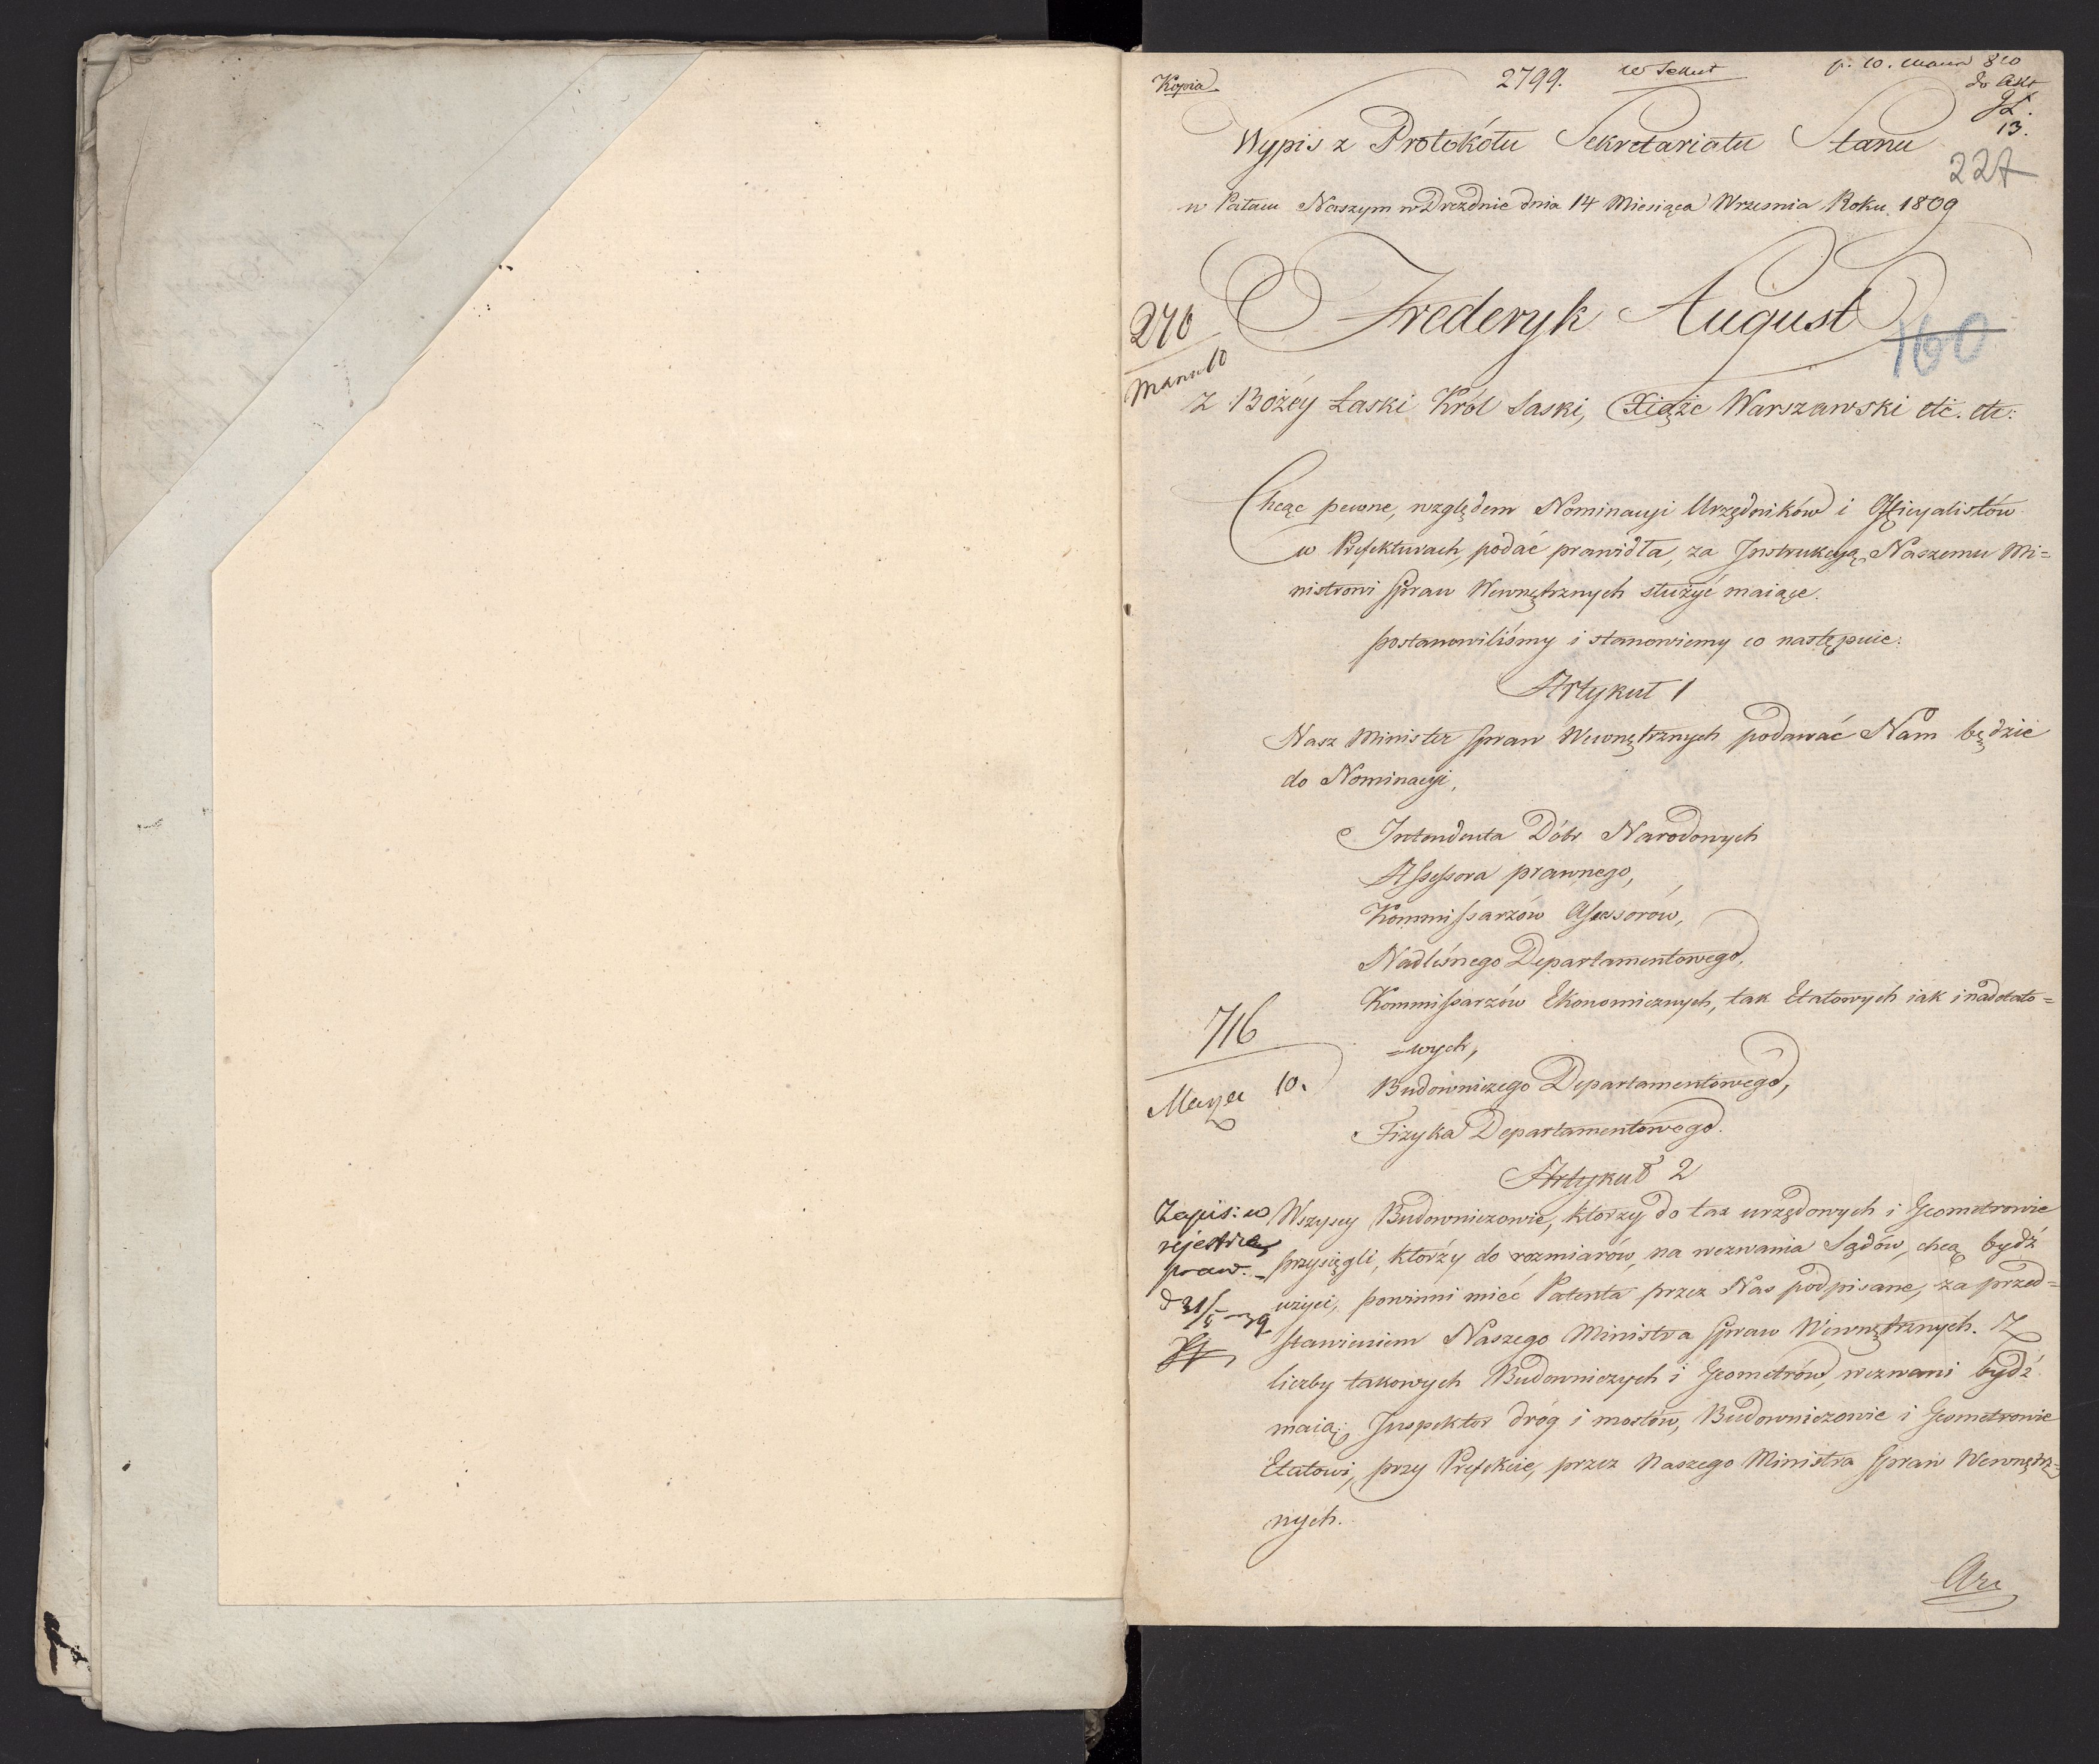 Kopia
2799.
do Akt
13.
Wypis z Protokółu Sekretariatu Stanu
227
w Pałacu Naszym w Dreźdnie dnia 14 Miesiąca Wrzesnia Roku 1809
Frederyk August
270
160
10
z Bożéy Łaski Król Saski, Xiąże Warszawski etc. etc:
Chcąc pewne, względem Nominacyi Urzędników i Officyalistów
w Prefekturach, podać prawidła, za Instrukcyą Naszemu Mi=
nistrowi Spraw Wewnętrznych służyć maiące.
postanowiliśmy i stanowiemy co następuie:
Artykuł 1
Nasz Minister Spraw Wewnętrznych podawać Nam będzie
do Nominacyi,
Intendenta Dóbr Narodowych
Assessora prawnego,
Kommissarzów Assessorów,
Nadleśnego Departamentowego,
Kommissarzów Ekonomicznych, tak Etatowych iak i nadetato=
716
=wych,
Budowniczego Departamentowego,
10.
Fizyka Departamentowego.
Artykuł 2
Zapis: w
rejestrze
spraw. -
Wszyscy Budowniczowie, którzy do tax urzędowych i Geometrowie
przysięgli, którzy do rozmiarów, na wezwania Sądów, chcą bydź
użyci, powinni mieć Patenta przez Nas podpisane, za przed=
stawieniem Naszego Ministra Spraw Wewnętrznych. Z
liczby takowych Budowniczych i Geometrów, wezwani bydź
maią; Inspektor dróg i mostów, Budowniczowie i Geometrowie
Etatowi, przy Prefekcie, przez Naszego Ministra Spraw Wewnętrz=
nych.